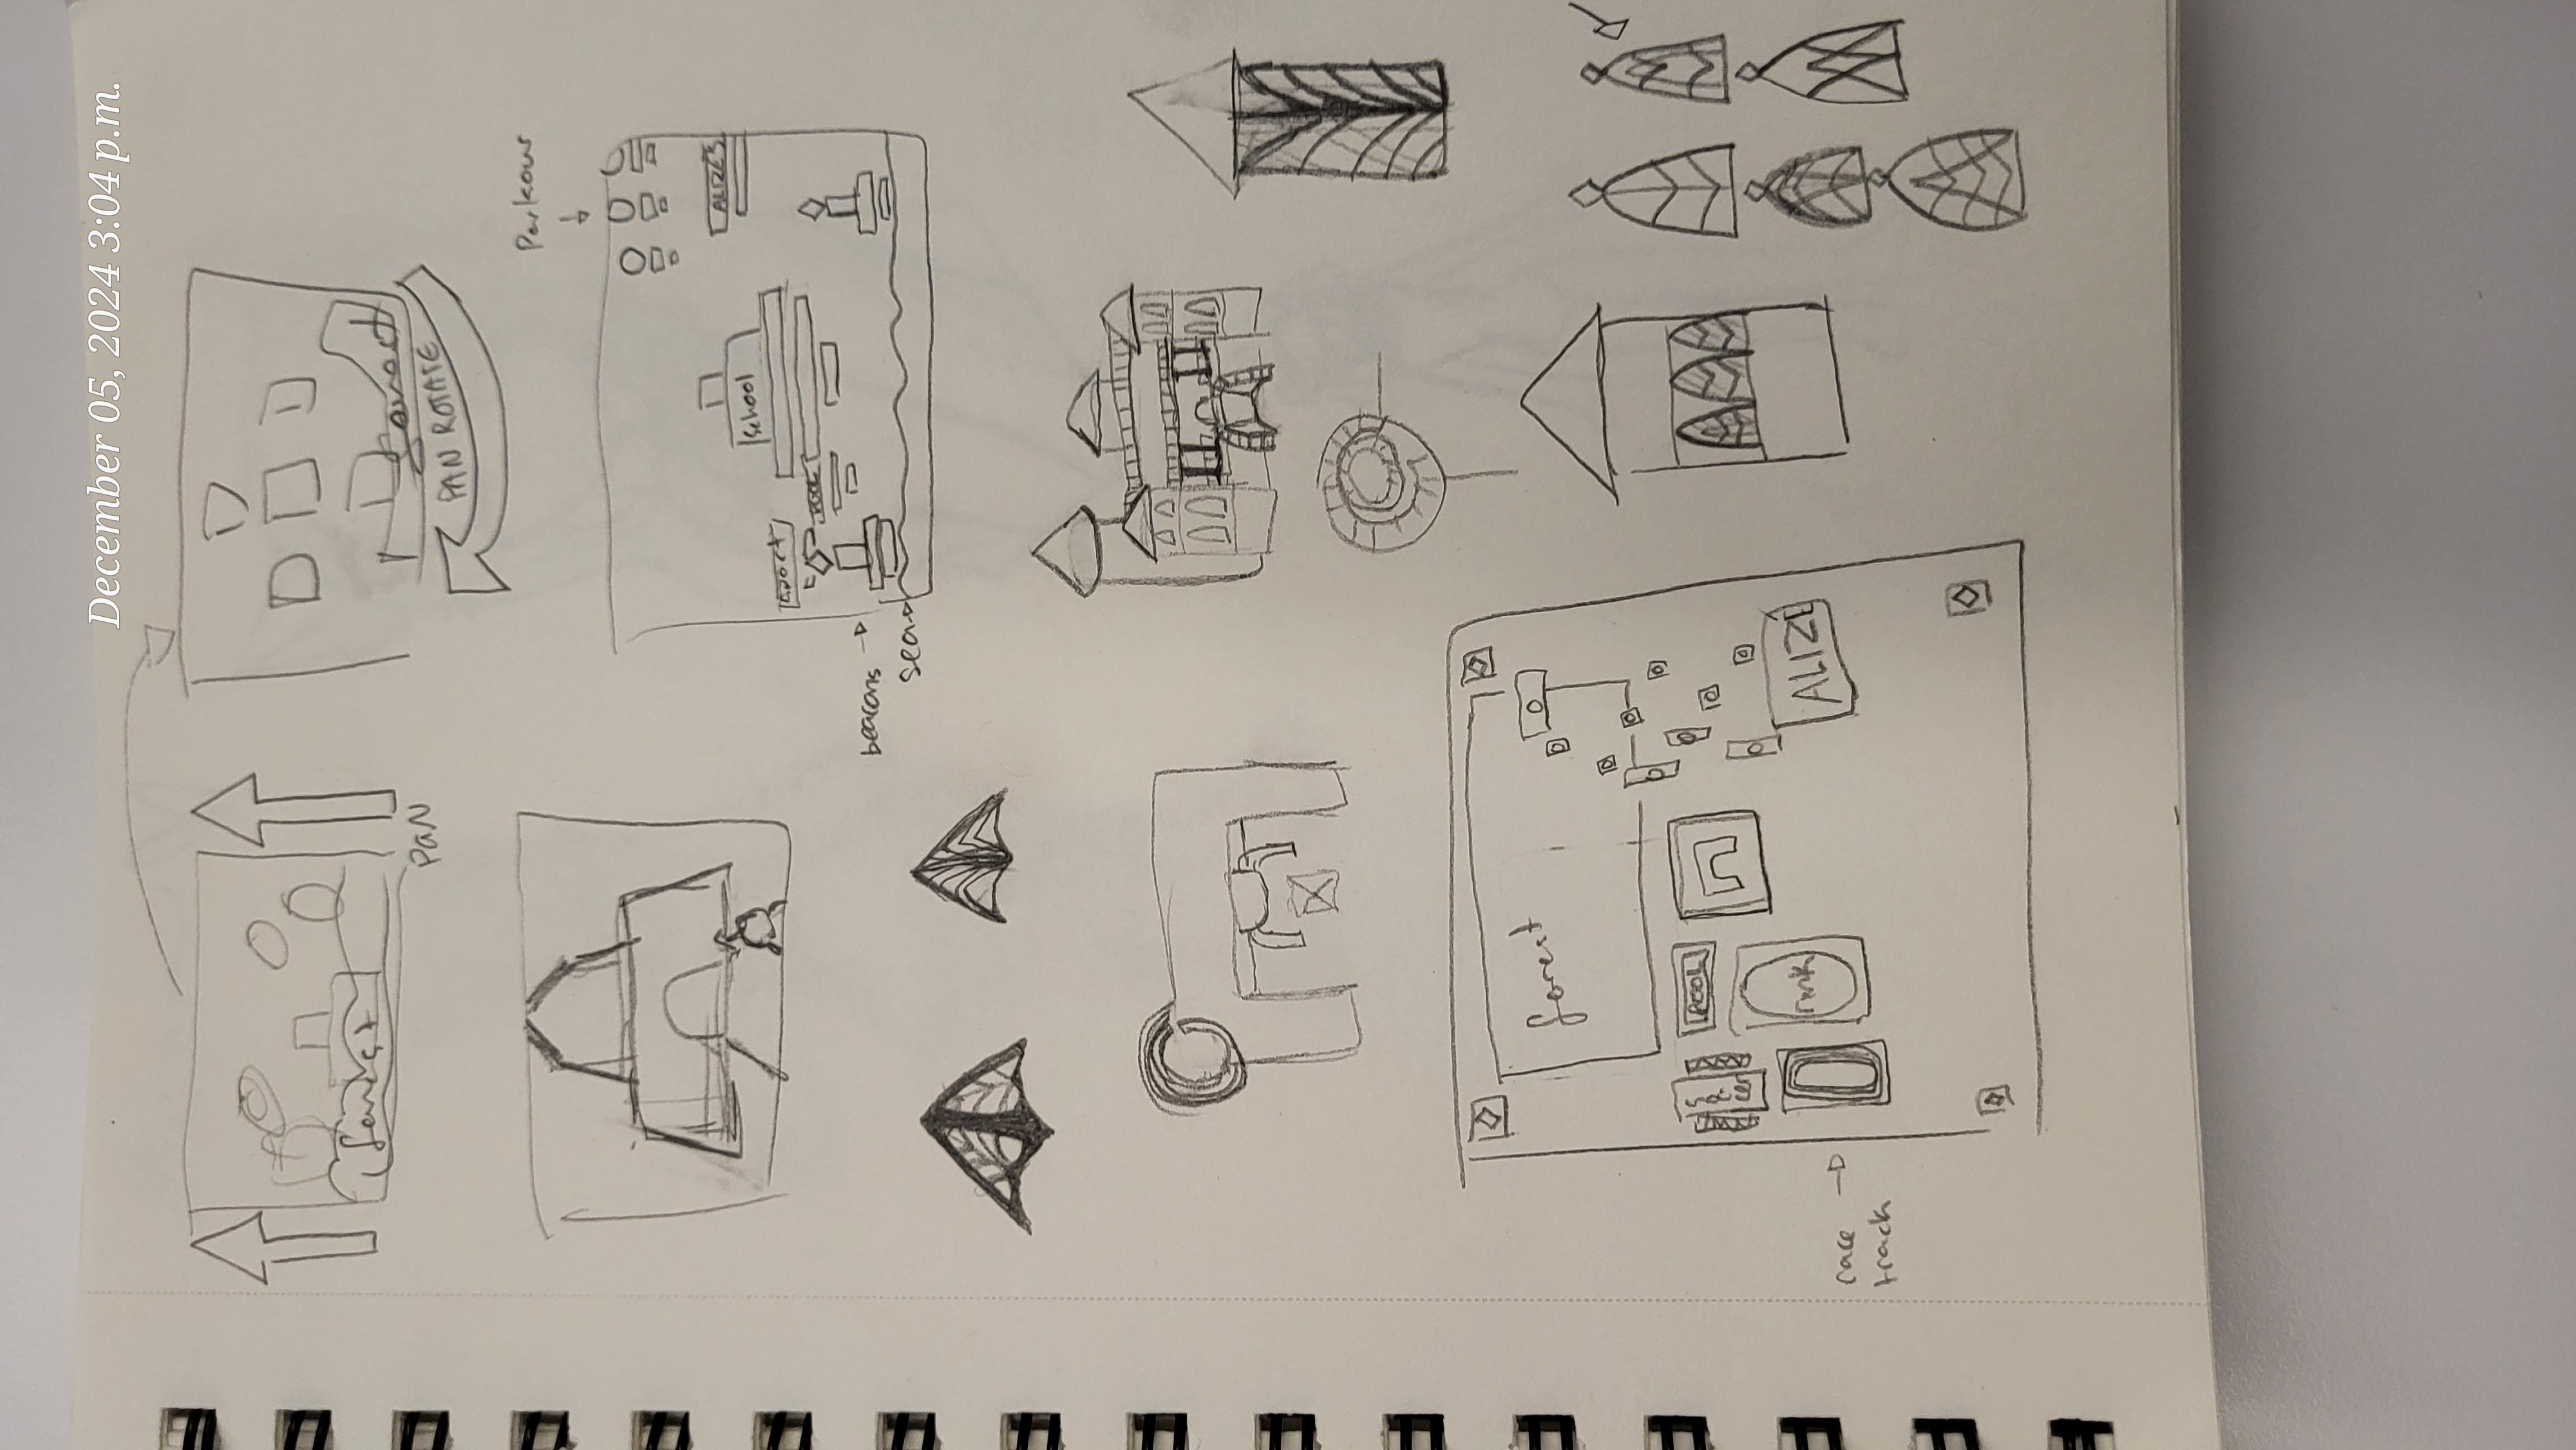 December 05, 2024 3:04 p.m.
forest
PAN
forest
PAN ROTATE
Parkour
ALIZE'S
School
sport
POOL
beacons
sea
forest
POOL
rink
ALIZE
race
track